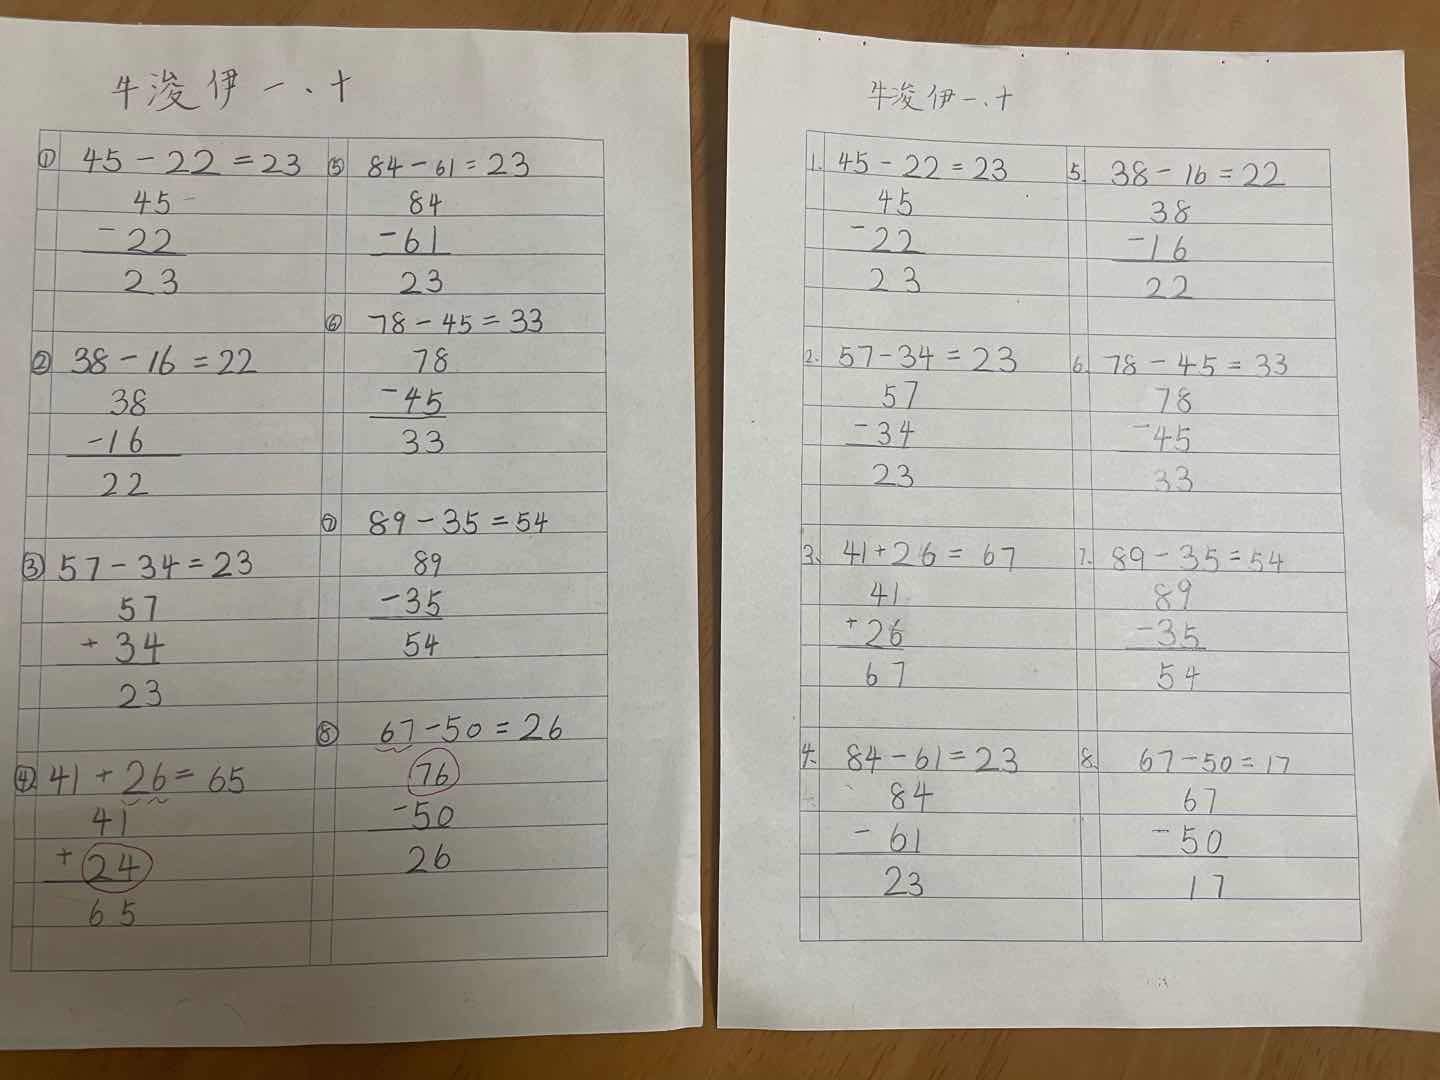 牛浚伊一、十
① 45-22=23
45
-22
23
② 38-16=22
38
-16
22
③ 57-34=23
57
+34
23
④ 41+26=65
41
+24
65
⑤ 84-61=23
84
-61
23
⑥ 78-45=33
78
-45
33
⑦ 89-35=54
89
-35
54
⑧ 67-50=26
76
-50
26
牛浚伊一、十
1. 45-22=23
45
-22
23
2. 57-34=23
57
-34
23
3. 41+26=67
41
+26
67
4. 84-61=23
84
-61
23
5. 38-16=22
38
-16
22
6. 78-45=33
78
-45
33
7. 89-35=54
89
-35
54
8. 67-50=17
67
-50
17